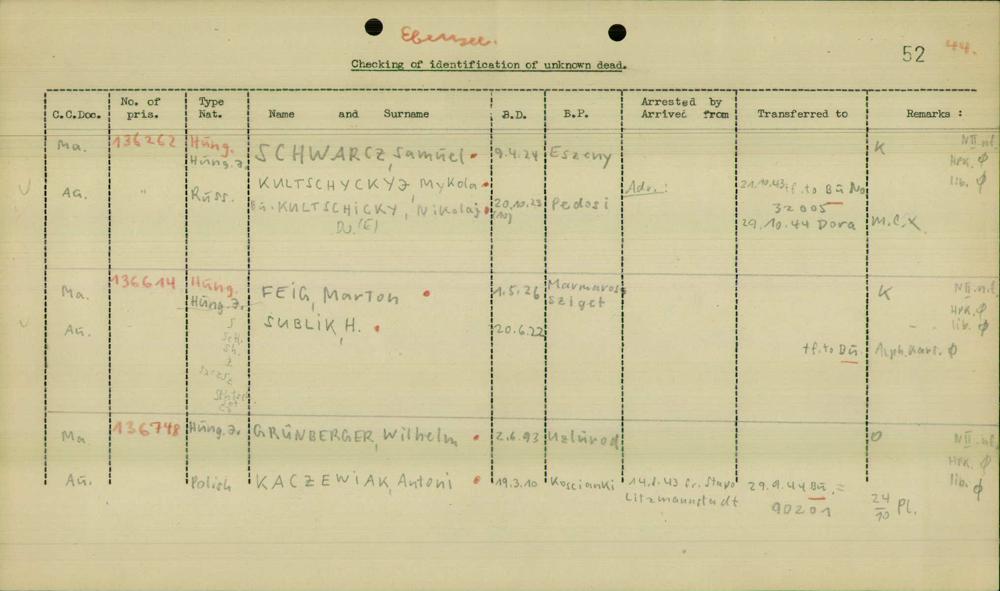 Ebensee.
52 44.
Checking of identification of unknown dead.
C.C.Doc. No. of pris. Type Nat. Name and Surname B.D. B.P. Arrested by Arrived from Transferred to Remarks :
Ma. 136262 Hüng. SCHWARCZ, Samuel 9.4.24 Eszeny K NII.nf.
Hüng.J. HPK. Ø
Aü. " Russ. KULTSCHYCKYJ Mykola Adr.: 21.10.43 tf. to Bü No lib. Ø
Bü. KULTSCHICKY, Nikolaj 20.10.23 Pedosi 32005
(10)
DJ. (E) 29.10.44 Dora M.C.X
Ma. 136614 Hüng. FEIG, Marton 1.5.26 Marmaros sziget K NII.nf.
Hüng.J. HPK. Ø
Aü. SUBLIK, H. 20.6.22 lib. Ø
S
Sch.
Sh.
tf. to Bü Alph.Kart. Ø
Ma. 136748 Hüng.J. GRÜNBERGER, Wilhelm 2.6.93 Uzlurod O NII.nf.
HPK. Ø
Aü. Polish KACZEWIAK, Antoni 19.3.10 Koscianki 14.8.43 fr. Stapo 29.9.44 Bü. = lib. Ø
Litzmannstadt 90201 24/10 Pl.